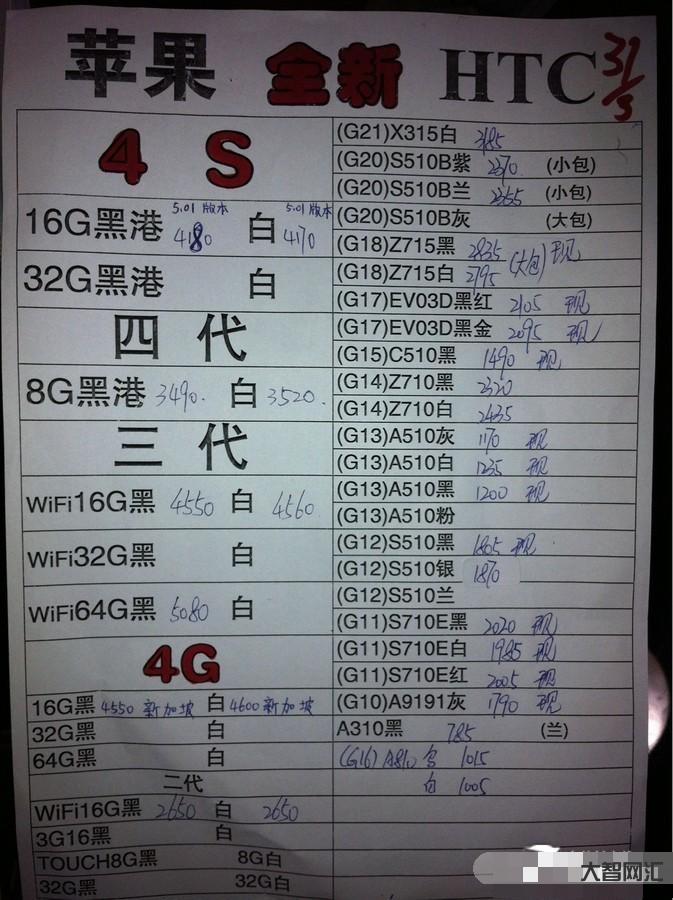 苹果 全新 HTC 31/3
4 S
5.01版本 5.01版本
16G黑港 4180 白 4170
32G黑港 白
四代
8G黑港 3490. 白 3520.
三代
WiFi16G黑 4550 白 4560.
WiFi32G黑 白
WiFi64G黑 5080 白
4G
16G黑 4550 新加坡 白 4600 新加坡
32G黑 白
64G黑 白
二代
WiFi16G黑 2650 白 2650
3G16黑 白
TOUCH8G黑 8G白
32G黑 32G白
(G21)X315白 3185
(G20)S510B紫 2370. (小包)
(G20)S510B兰 2355 (小包)
(G20)S510B灰 (大包)
(G18)Z715黑 2835 现
(G18)Z715白 2795 (大包)
(G17)EV03D黑红 2105 现
(G17)EV03D黑金 2095 现
(G15)C510黑 1490 现
(G14)Z710黑 2320
(G14)Z710白 2435
(G13)A510灰 1170 现
(G13)A510白 1235 现
(G13)A510黑 1200 现
(G13)A510粉
(G12)S510黑 1805 现
(G12)S510银 1870
(G12)S510兰
(G11)S710E黑 2020 现
(G11)S710E白 1985 现
(G11)S710E红 2005 现
(G10)A9191灰 1790 现
A310黑 785 (兰)
(G16) A810 1015
白 1005
大智网汇